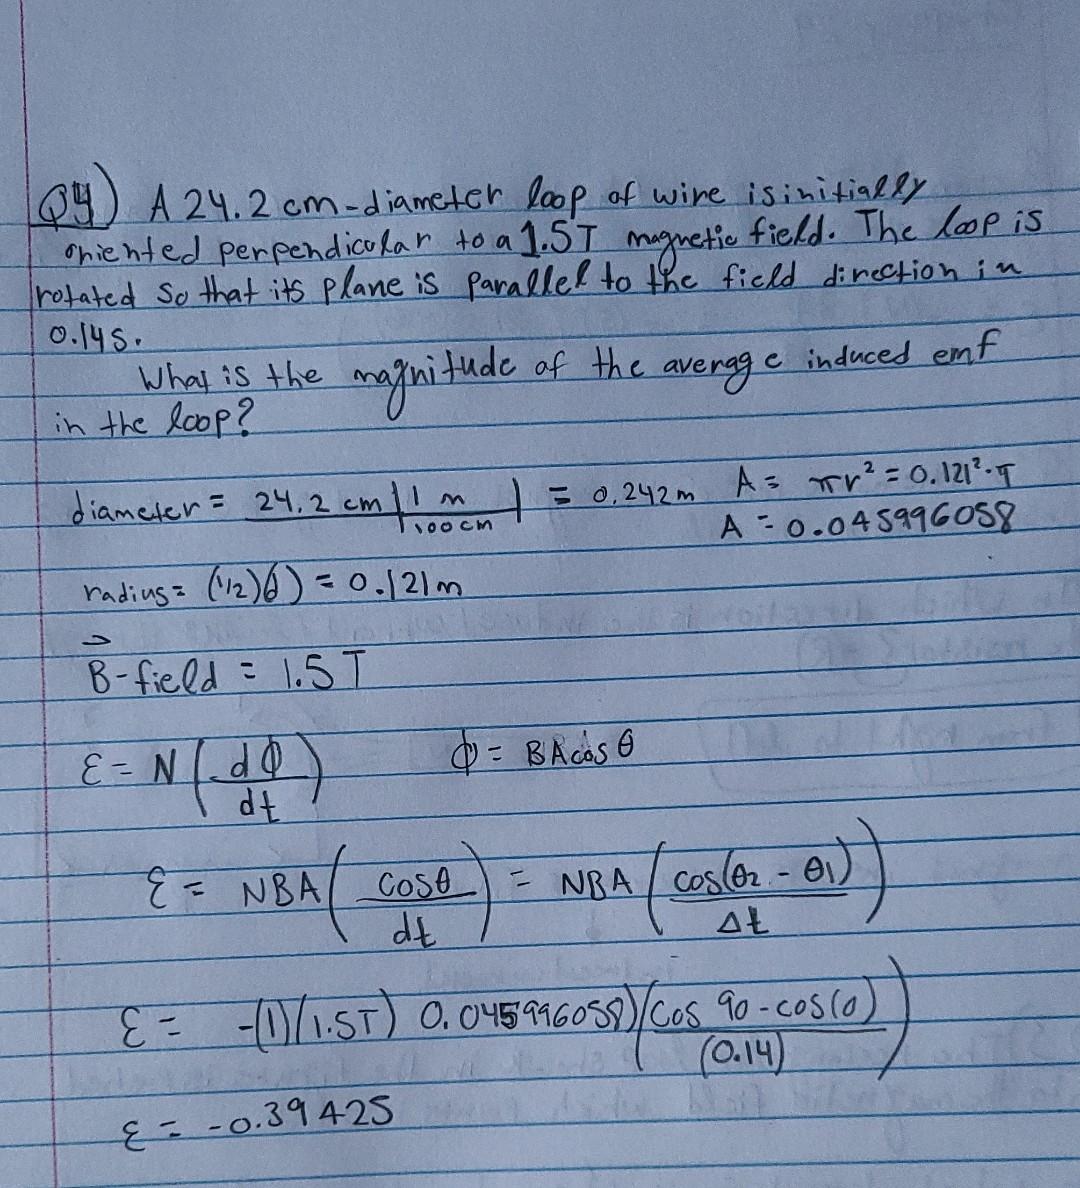 Q4) A 24.2 cm-diameter loop of wire is initially
oriented perpendicular to a 1.5T magnetic field. The loop is
rotated so that its plane is parallel to the field direction in
0.14s.
What is the magnitude of the average induced emf
in the loop?
diameter = 24.2 cm | 1 m / 100 cm | = 0.242m A = πr² = 0.121²·π
A = 0.045996058
radius = (1/2)(d) = 0.121m
B⃗-field = 1.5 T
ε = N (dΦ/dt) Φ = BAcosθ
ε = NBA (cosθ/dt) = NBA (cos(θ2 - θ1)/Δt)
ε = -(1)(1.5T) 0.045996058)(cos 90 - cos(0)/(0.14))
ε = -0.39425